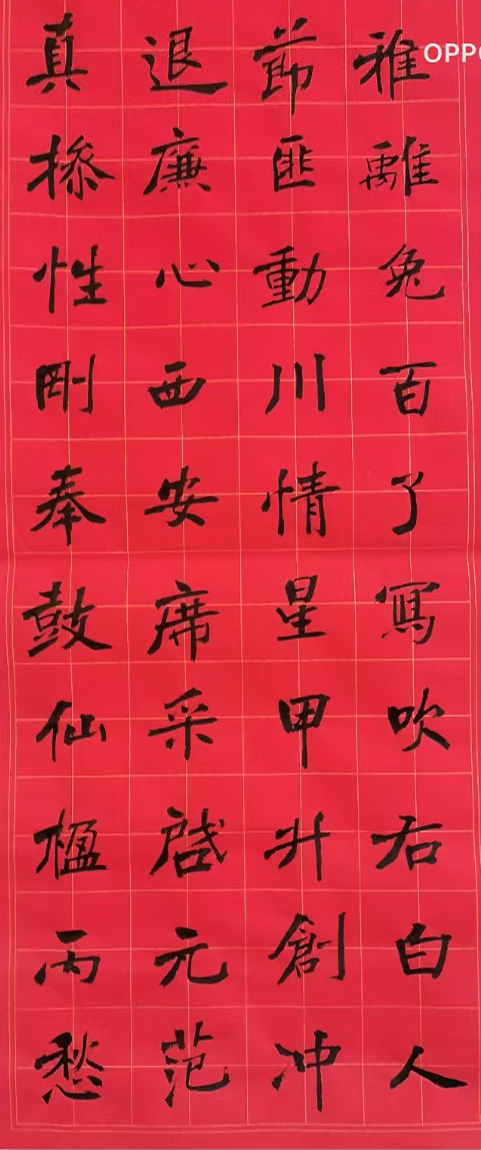 雅離兔百了寫吹右白人
節匪動川情星甲升創冲
退廉心西安席采啟元范
真操性剛奉鼓仙楹丙愁
OPPO